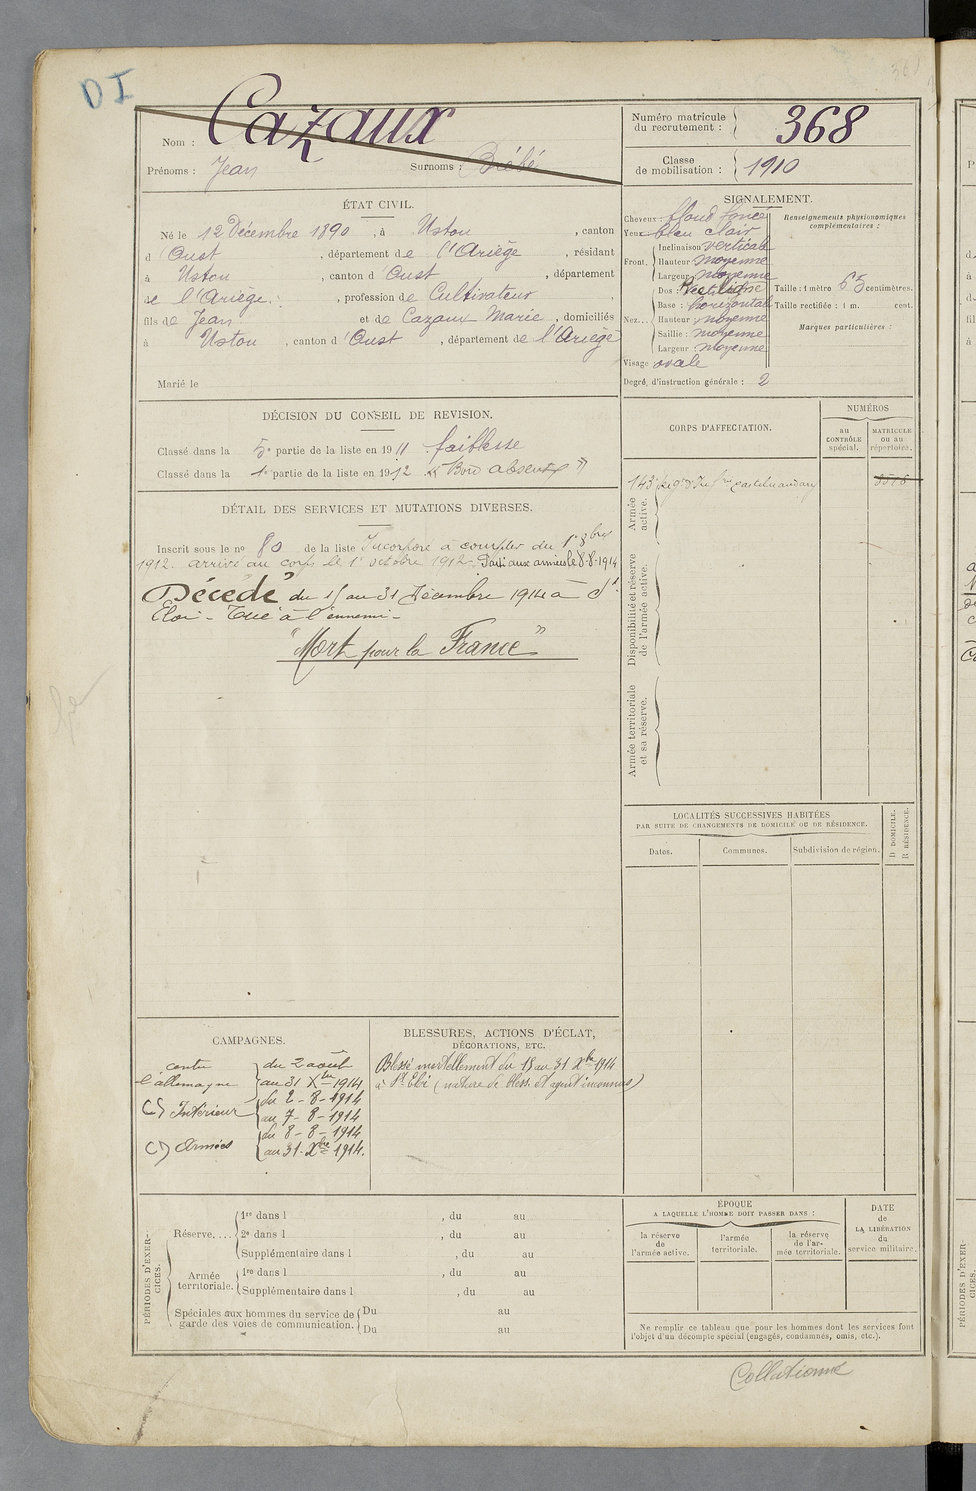 DI
Nom : Cazaux
Prénoms : Jean Surnoms : Bébé
Numéro matricule
du recrutement : 368
Classe
de mobilisation : 1910
ÉTAT CIVIL.
Né le 12 Décembre 1890, à Ustou, canton
d'Oust, département de l'Ariège, résidant
à Ustou, canton d'Oust, département
de l'Ariège, profession de Cultivateur,
fils de Jean et de Cazaux Marie, domiciliés
à Ustou, canton d'Oust, département de l'Ariège
Marié le
SIGNALEMENT.
Cheveux : blond foncé
Yeux bleu clair
Front. Inclinaison verticale
Hauteur moyenne
Largeur moyenne
Nez... Dos : Rectiligne
Base : horizontale
Hauteur : moyenne
Saillie : moyenne
Largeur : moyenne
Visage ovale
Renseignements physionomiques
complémentaires :
Taille : 1 mètre 65 centimètres.
Taille rectifiée : 1 m. cent.
Marques particulières :
Degré, d'instruction générale : 2
DÉCISION DU CONSEIL DE REVISION.
Classé dans la 5e partie de la liste en 1911 faiblesse
Classé dans la 1e partie de la liste en 1912 « Bon absent »
DÉTAIL DES SERVICES ET MUTATIONS DIVERSES.
Inscrit sous le no 80 de la liste Incorporé à compter du 1er 8bre
1912. arrivé au corps le 1er octobre 1912. Parti aux armées le 8-8-1914
Décédé du 15 au 31 Décembre 1914 à St
Eloi - Tué à l'ennemi -
"Mort pour la France"
CORPS D'AFFECTATION.
NUMÉROS
au
CONTRÔLE
spécial.
MATRICULE
ou au
répertoire.
Armée
active.
143e Regt d'Infrie Castelnaudary
Disponibilité et réserve
de l'armée active.
Armée territoriale
et sa réserve.
LOCALITÉS SUCCESSIVES HABITÉES
PAR SUITE DE CHANGEMENTS DE DOMICILE OU DE RÉSIDENCE.
Dates.
Communes.
Subdivision de région.
D DOMICILE.
R RÉSIDENCE.
CAMPAGNES.
contre
l'allemagne
du 2 août
au 31 Xbre 1914
C) Intérieur
du 2-8-1914
au 7-8-1914
C) Armées
du 8-8-1914
au 31 Xbre 1914.
BLESSURES, ACTIONS D'ÉCLAT,
DÉCORATIONS, ETC.
Blessé mortellement du 15 au 31 Xbre 1914
à St Eloi (nature de bless. et agent inconnus)
PÉRIODES D'EXER-
CICES.
Réserve.... 1re dans l , du au
2e dans l , du au
Supplémentaire dans l , du au
Armée
territoriale. 1re dans l , du au
Supplémentaire dans l , du au
Spéciales aux hommes du service de
garde des voies de communication. Du au
Du au
ÉPOQUE
A LAQUELLE L'HOMME DOIT PASSER DANS :
la réserve
de
l'armée active.
l'armée
territoriale.
la réserve
de l'ar-
mée territoriale.
DATE
de
LA LIBÉRATION
du
service militaire.
Ne remplir ce tableau que pour les hommes dont les services font
l'objet d'un décompte spécial (engagés, condamnés, omis, etc.).
Collationné